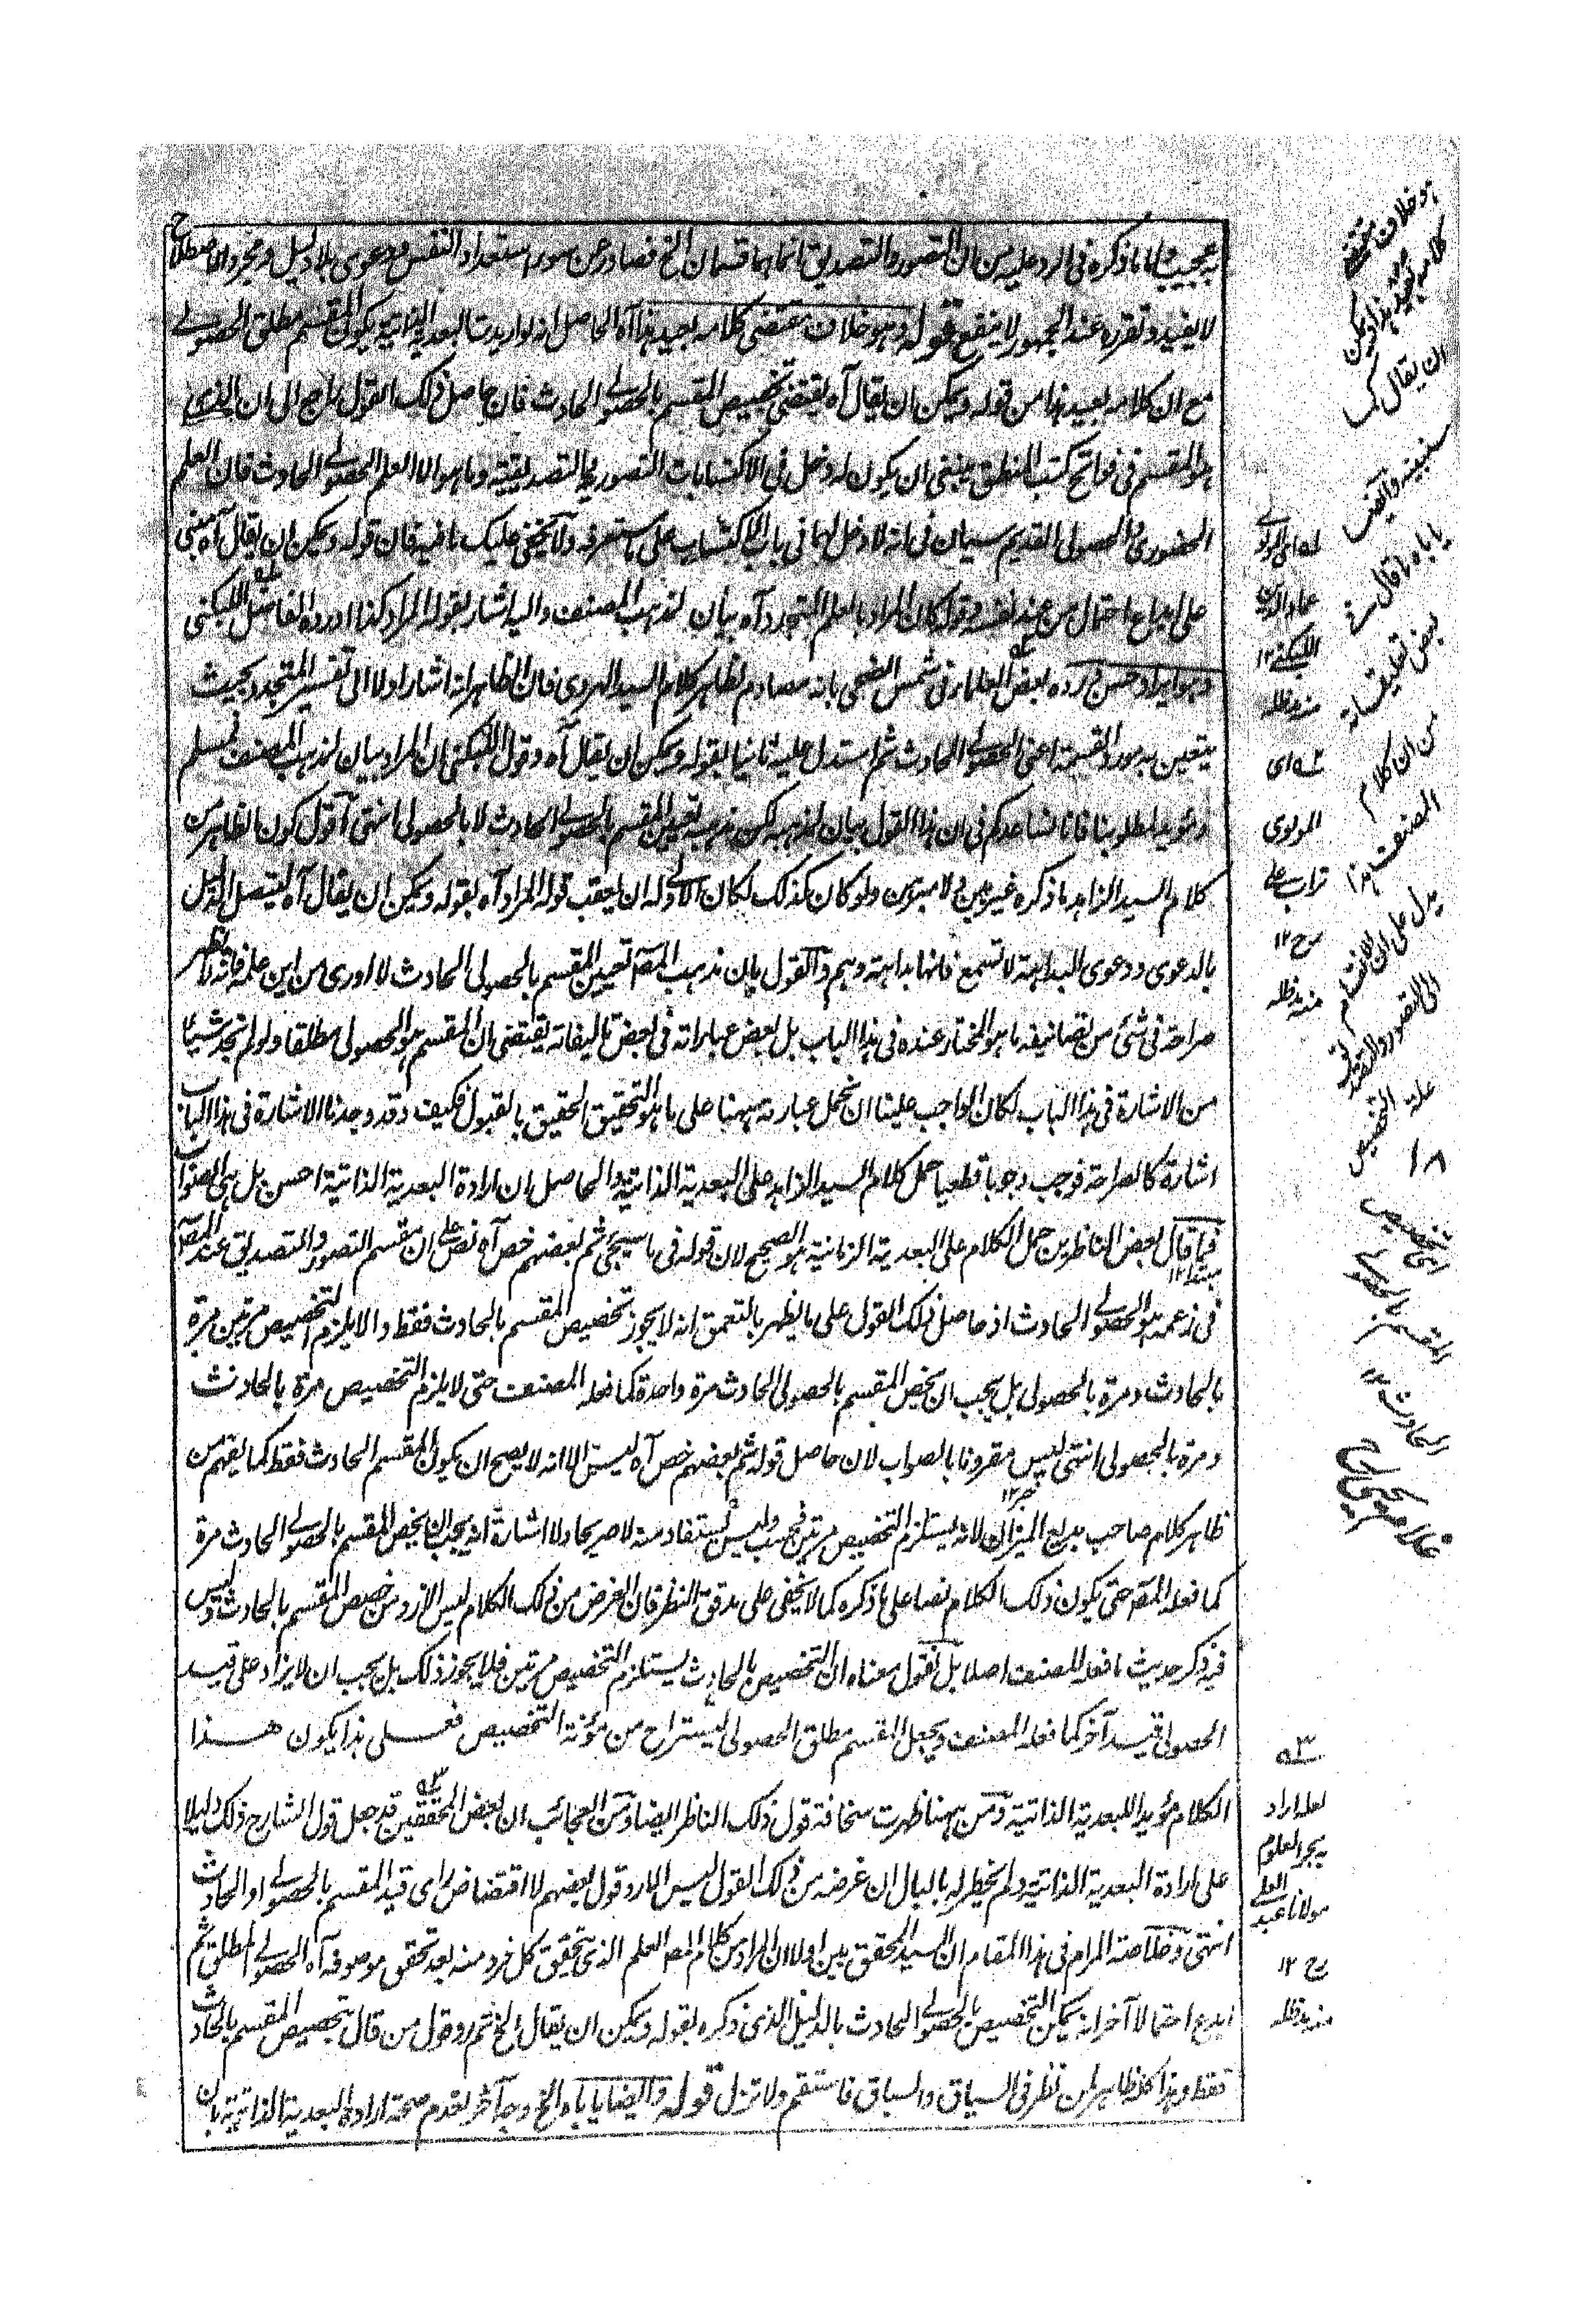 به عجيب واما ما ذكره فى الرد عليه من ان التصور والتصديق انما هما قسمان الخ فصادر من سوء استعداد النفس ودعوى بلا دليل ومجرد الاصطلاح
لا يفيد وتقرره عند الجمهور لا ينفع قوله وهو خلاف مقتضى كلامه بعيد هذا آه الحاصل انه لو اريدت البعدية الذاتية يكون المقسم مطلق الحصولى
مع ان كلامه بعيد هذا من قوله ويمكن ان يقال آه يقتضى تخصيص المقسم بالحصولى الحادث فان حاصل ذلك القول راجع الى ان الذى
هو المقسم فى فواتح كتب المنطق ينبغى ان يكون له دخل فى الاكتسابات التصورية والتصديقية وما هو الا العلم الحصولى الحادث فان العلم
الحضورى والحصولى القديم سيان فى انه لا دخل لهما فى باب الاكتساب على ما ستعرفه ولا يخفى عليك ما فيه فان قوله ويمكن ان يقال آه مبنى
على ابداع احتمال من عند نفسه وقوله كان المراد بالعلم المتجدد آه بيان لمذهب المصنف واليه اشار بقوله المراد كذا اورده الفاضل اللبكنى
وهو ايراد حسن ورده بعض العلماء فى شمس الضحى بانه مصادم لظاهر كلام السيد الهروى فان الظاهر انه اشار اولا الى تفسير المتجدد بحيث
يتعين به مورد القسمة اعنى الحصولى الحادث ثم استدل عليه ثانيا بقوله ويمكن ان يقال آه وقول اللبكنى ان المراد بيان لمذهب المصنف مسلم
ومؤيد لمطلوبنا فانا نساعدكم فى ان هذا القول بيان لمذهبه لكن مذهبه تعيين المقسم بالحصولى الحادث لا بالحصولى انتهى اقول كون الظاهر من
كلام السيد الزاهد ما ذكره غير بين ولا مبين ولو كان كذلك لكان الاولى له ان يعقب قوله المراد آه بقوله ويمكن ان يقال آه ليتصل الدليل
بالدعوى ودعوى البداهة لا تسمع فانها بداهة وهم والقول بان مذهب المصـ تعيين المقسم بالحصولى الحادث لا ادرى من اين علمه فانه لم يظهر
صراحة فى شئ من تصانيفه ما هو المختار عنده فى هذا الباب بل بعض عباراته فى بعض تاليفاته يقتضى ان المقسم هو الحصولى مطلقا ولو لم نجد شيئا
من الاشارة فى هذا الباب لكان الواجب علينا ان نحمل عبارته ههنا على ما هو التحقيق الحقيق بالقبول فكيف وقد وجدنا الاشارة فى هذا الباب
اشارة كالصراحة فوجب وجوبا قطعيا حمل كلام السيد الزاهد على البعدية الذاتية والحاصل ان ارادة البعدية الذاتية احسن بل هى الصواب
فما قال بعض الناظرين حمل الكلام على البعدية الزمانية هو الصحيح لان قوله فى ما سيجئ ثم بعضهم خص آه نص على ان مقسم التصور والتصديق عند المصـ
فى زعمه هو الحصولى الحادث اذ حاصل ذلك القول على ما يظهر بالتعمق انه لا يجوز تخصيص المقسم بالحادث فقط والا يلزم التخصيص مرتين مرة
بالحادث ومرة بالحصولى بل يجب ان يخص المقسم بالحصولى الحادث مرة واحدة كما فعله المصنف حتى لا يلزم التخصيص مرة بالحادث
ومرة بالحصولى انتهى ليس مقرونا بالصواب لان حاصل قوله ثم بعضهم خص آه ليس الا انه لا يصح ان يكون المقسم الحادث فقط كما يفهم من
ظاهر كلام صاحب بديع الميزان لانه يستلزم التخصيص مرتين فحسب وليس يستفاد منه لا صريحا ولا اشارة انه يجب ان يخص المقسم بالحصولى الحادث مرة
كما فعله المصـ حتى يكون ذلك الكلام نصا على ما ذكره كما لا يخفى على مدقق النظر فان الغرض من ذلك الكلام ليس الا رد من خصص المقسم بالحادث وليس
فيه ذكر حديث ما فعله المصنف اصلا بل نقول معناه ان التخصيص بالحادث يستلزم التخصيص مرتين فلا يجوز ذلك بل يجب ان لا يزاد على قيد
الحصولى قيد آخر كما فعله المصنف ويجعل المقسم مطلق الحصولى ليستراح من مؤنة التخصيص فعلى هذا يكون هذا
الكلام مؤيدا للبعدية الذاتية ومن ههنا ظهرت سخافة قول ذلك الناظر ايضا ومن العجائب ان بعض المحققين قد جعل قول الشارح ذلك دليلا
على ارادة البعدية الذاتية ولم يخطر له بالبال ان غرضه من ذلك القول ليس الا رد قول بعضهم لا اقتضاض راى قيد المقسم بالحصولى او الحادث
انتهى وخلاصة المرام فى هذا المقام ان السيد المحقق بين اولا ان المراد من كلام المصـ العلم الذى تحقق كل فرد منه بعد تحقق موصوفه آه الحصولى المطلق ثم
ابدع احتمالا آخر انه يمكن التخصيص بالحصولى الحادث بالدليل الذى ذكره بقوله ويمكن ان يقال الخ ثم رد قول من قال بتخصيص المقسم بالحادث
فقط وهذا كله ظاهر لمن نظر فى السياق والسباق فاستقم ولا تزل قوله وايضا ياباه الخ وجه آخر لعدم صحة ارادة البعدية الذاتية بان
هو خلاف مقتضى
كلامه بعيد هذا ويمكن
ان يقال كما
سنبينه وايضا
ياباه ما قال فى
بعض تعليقاته
من ان كلام
المصنف هذا
يدل على ان الانقسام
الى التصور والتصديق
علة التخصيص
١٨
اى تخصيص
المقسم بالحصولى
الحادث ١٢
غلام يحيى رح
له اى المولوى
عماد الدين
اللبكنى ١٢
منه مد ظله
سه اى
المولوى
تراب على
رح ١٢
منه مد ظله
سه
لعله اراد
بحر العلوم
مولانا عبد العلى
رح ١٢
منه مد ظله